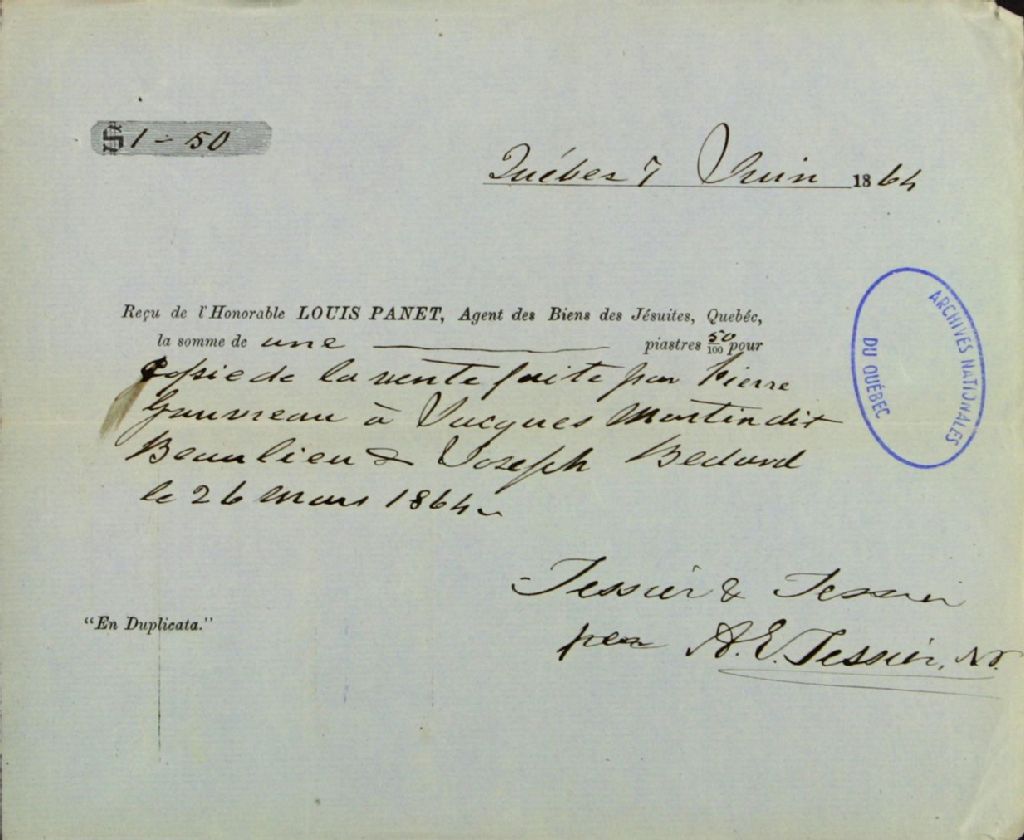 $ 1 - 50
Québec 7 Juin 1864
Reçu de l'Honorable LOUIS PANET, Agent des Biens des Jésuites, Quebéc,
la somme de une piastres 50/100 pour
Copie de la vente faite par Pierre
Gauvreau à Jacques Martin dit
Beaulieu & Joseph Bedard
le 26 Mars 1864
ARCHIVES NATIONALES
DU QUÉBEC
Tessier & Tessier
per A. E. Tessier, N.P.
"En Duplicata."